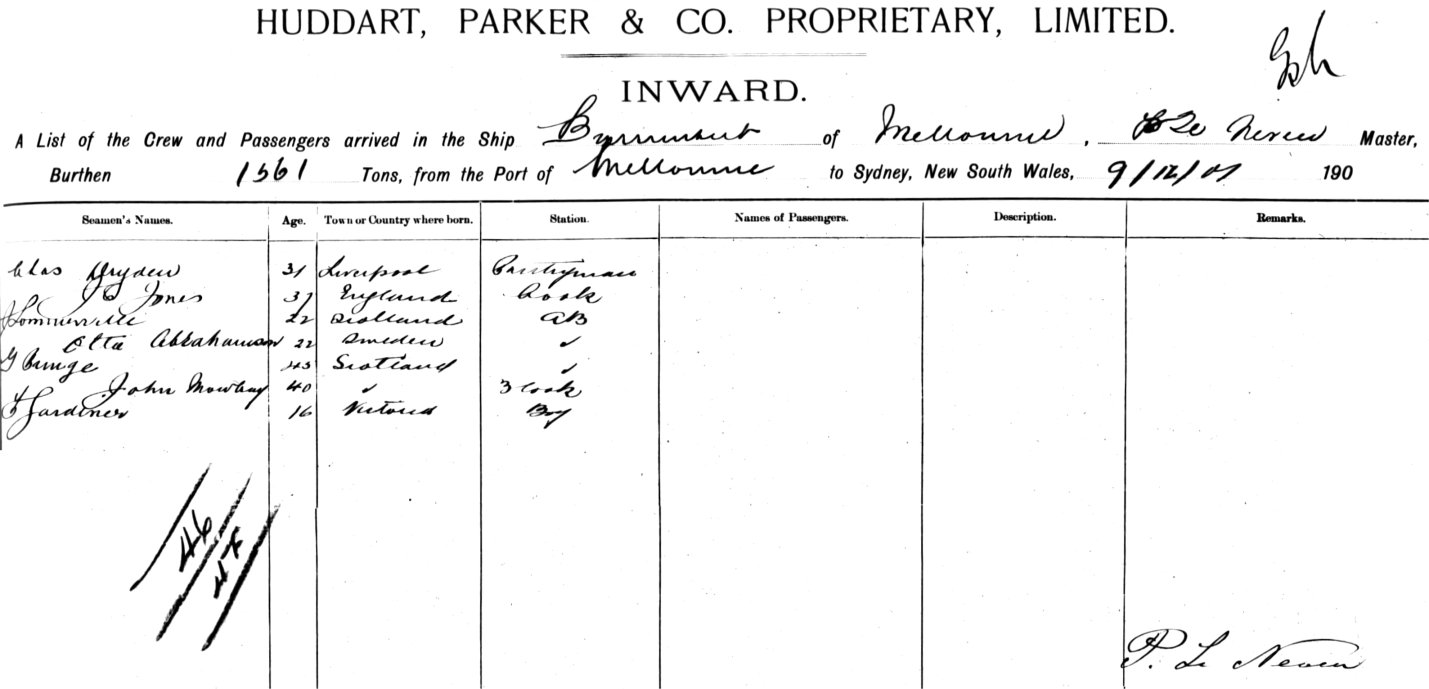 HUDDART, PARKER & CO. PROPRIETARY, LIMITED.
INWARD.
A List of the Crew and Passengers arrived in the Ship of Melbourne, Master,
Burthen 1561 Tons, from the Port of Melbourne to Sydney, New South Wales, 9/12/01 190
Seamen's Names. Age. Town or Country where born. Station. Names of Passengers. Description. Remarks.
Chas Dryden 31 Liverpool Pantryman
J Jones 37 England Cook
J Sommerville 22 Scotland AB
Otto Abrahamson 22 Sweden ✓
G 45 Scotland ✓
John Mowbray 40 ✓ 3 Cook
F Gardiner 16 Victoria Boy
46
48
P. Le Neveu